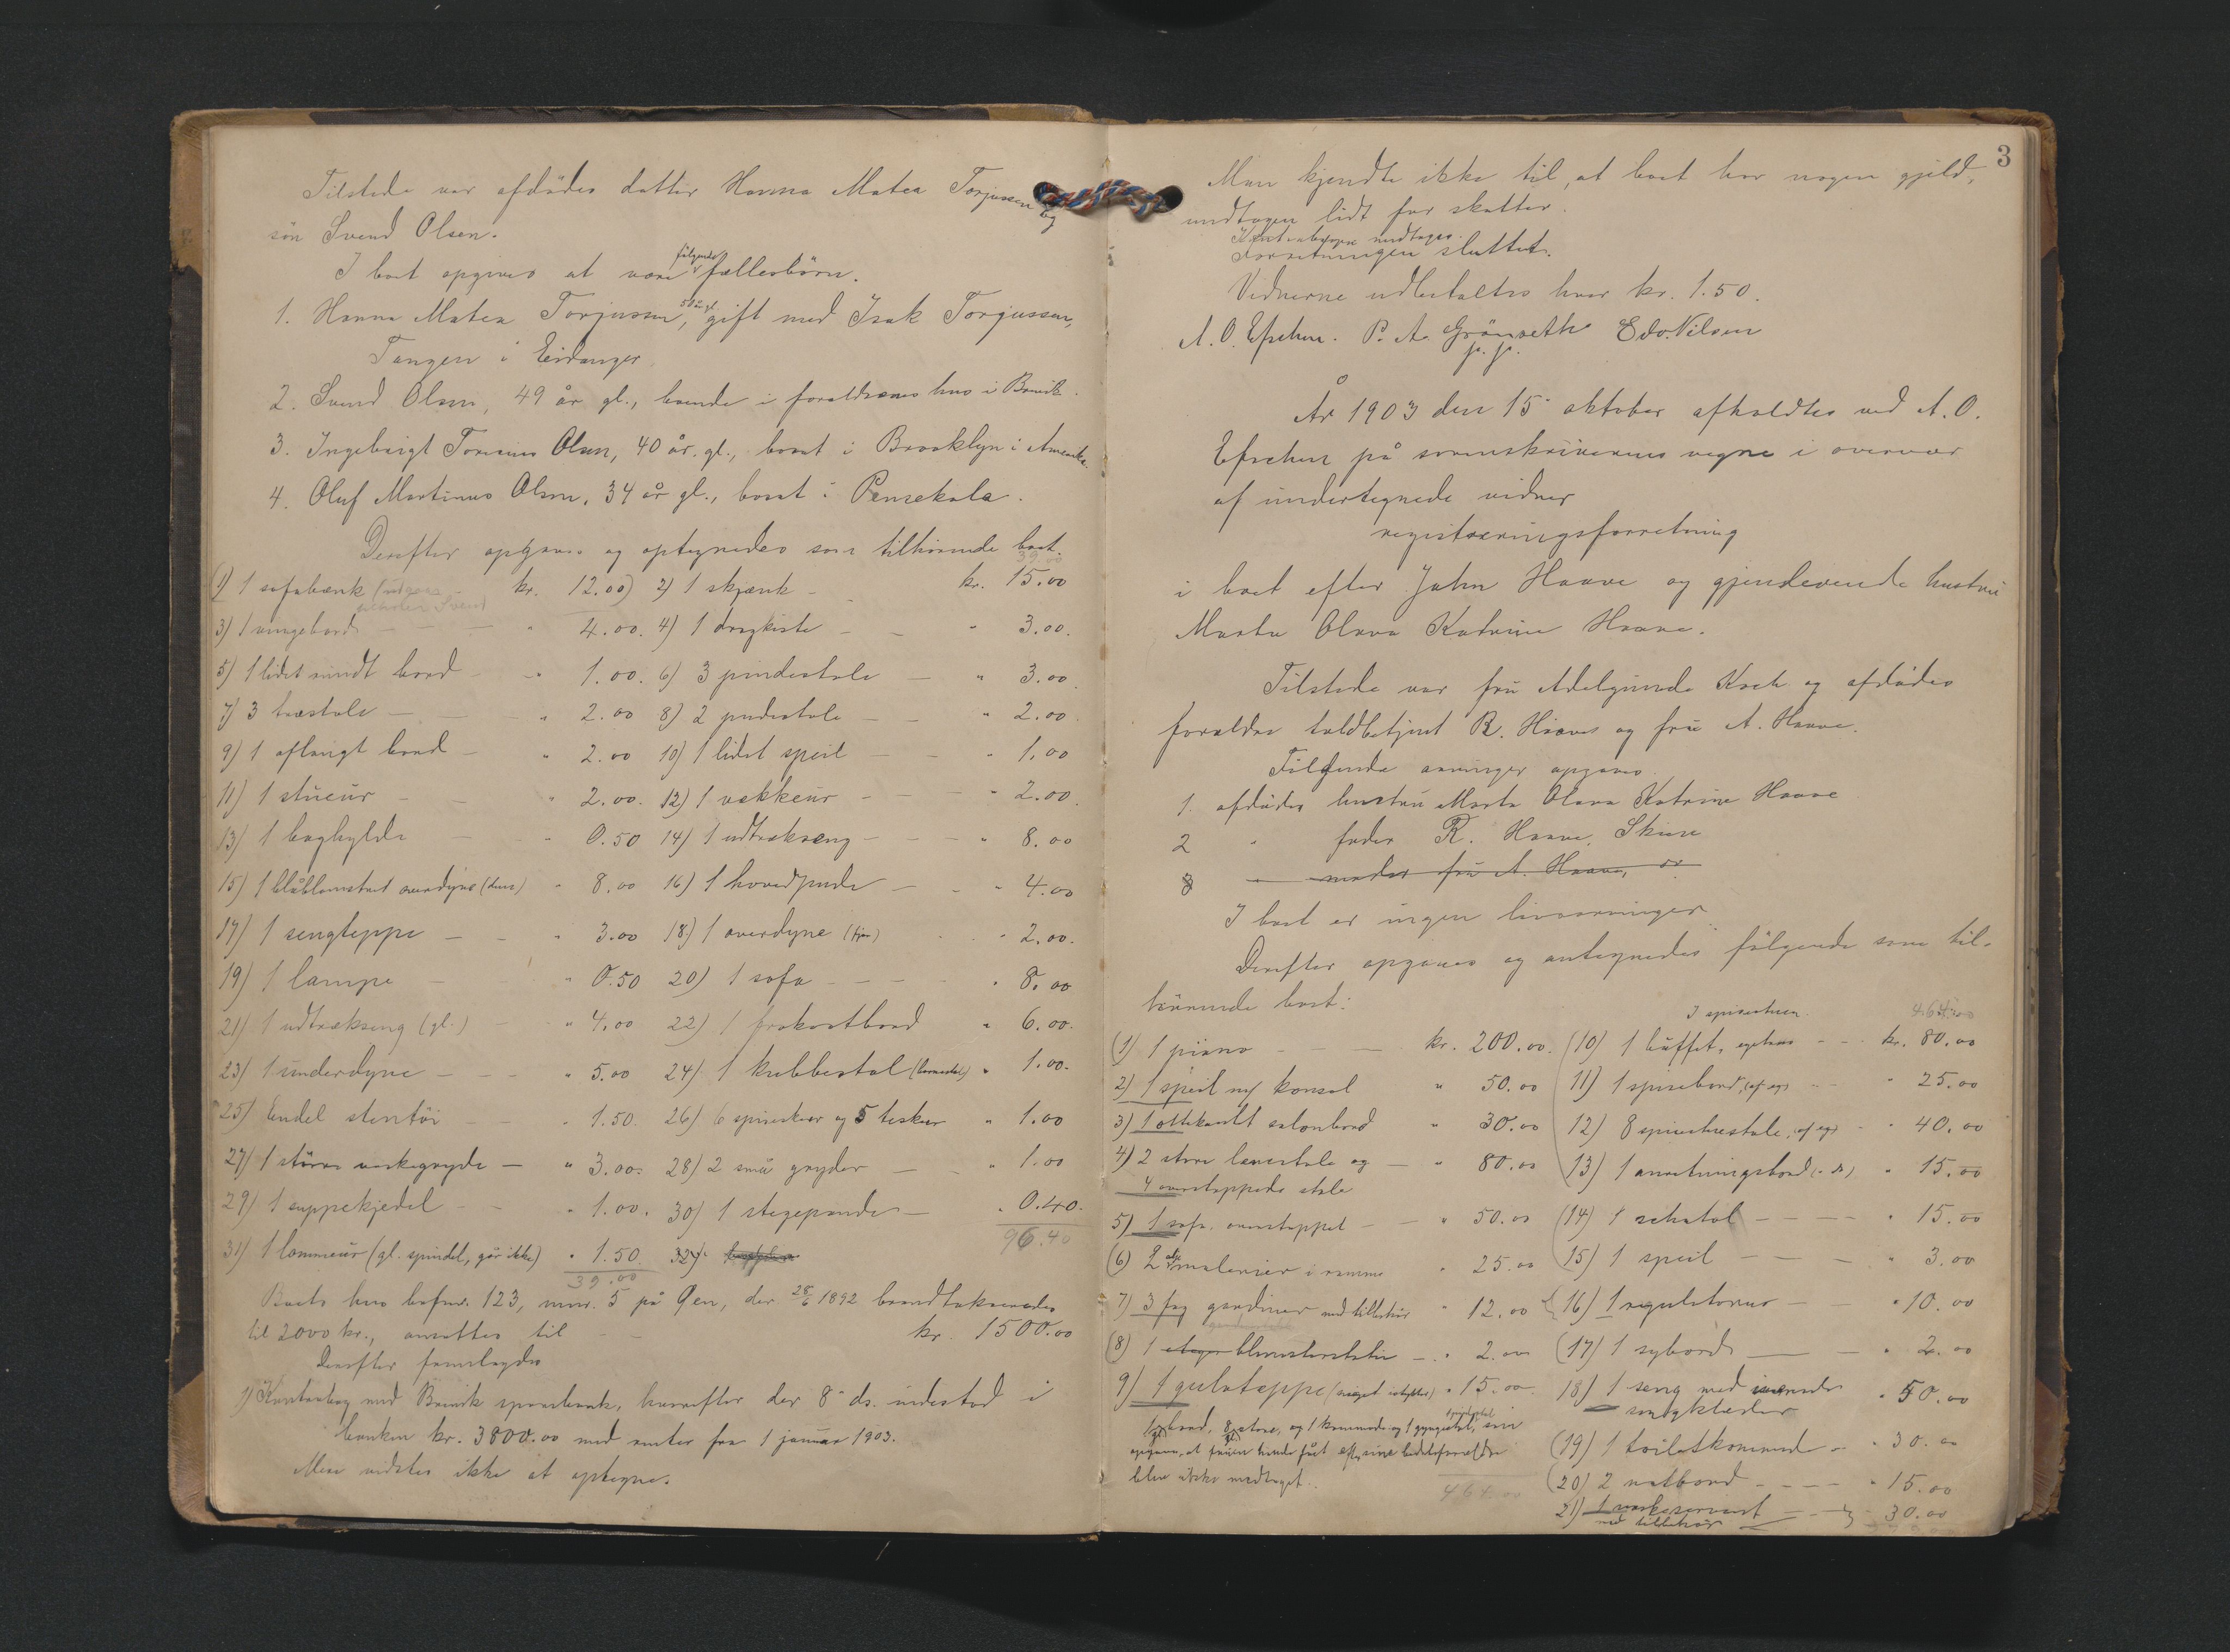 Tilstede var afdødes datter Hanna Matea Torjussen og
søn Svend Olsen.
I boet opgives at være følgende fællesbörn.
1. Hanna Matea Torjussen, 50 år gl. gift med Isak Torjussen,
Tangen i Eidanger.
2. Svend Olsen, 49 år gl., boende i forældrenes hus i Brevik.
3. Ingebrigt Olsen, 40 år gl., bosat i Brooklyn i Amerika.
4. Oluf Martinus Olsen, 34 år gl., bosat i Pensekola.
Derefter opgaves og optegnedes som tilhörende boet.
39.00
1) 1 sofabænk (udgaar kr. 12.00) 2) 1 skjænk - kr. 15.00
tilhører Svend
3) 1 vingebord - - " 4.00. 4) 1 dragkiste - - " 3.00.
5) 1 lidet rundt bord - " 1.00. 6) 3 pindestole - " 3.00.
7) 3 træstole - - " 2.00 8) 2 pudestole - - " 2.00.
9) 1 aflangt bord - " 2.00 10) 1 lidet speil - - " 1.00
11) 1 stueur - - " 2.00. 12) 1 vækkeur - - - " 2.00.
13) 1 boghylde - - " 0.50 14) 1 udtrækseng - - - " 8.00
15) 1 blåblomstret overdyne (dun) " 8.00 16) 1 hovedpude - - " 4.00
17) 1 sengteppe - - " 3.00 18) 1 overdyne (fjær) " 2.00.
19) 1 lampe - - " 0.50 20) 1 sofa - - - " 8.00
21) 1 udtrækseng (gl.) - " 4.00 22) 1 frokostbord " 6.00.
23) 1 underdyne - - - " 5.00 24) 1 krubbestol (barnestol) " 1.00.
25) Endel stentöi - - " 1.50. 26) 6 spiseskeer og 5 teskeer " 1.00
27) 1 större vaskegryde - " 3.00. 28) 2 små gryder - - " 1.00
29) 1 suppekjedel - - " 1.00. 30) 1 stegepande - " 0.40.
96.40
31) 1 lommeur (gl. spindel, går ikke) " 1.50. 32)
39.00
Boets hus bofnr. 123, mnr. 5 på Øen, der 28/6 1892 brandtakseredes
til 2000 kr., ansættes til - - kr. 1500.00
Derefter fremlagdes
1) Kontrabog med Brevik sparebank, hvorefter der 8de ds. indestod i
banken kr. 3800.00 med renter fra 1 januar 1903.
Mere vidstes ikke at optegne.
3
Man kjendte ikke til, at boet har nogen gjeld,
undtagen lidt for skatter.
Kontrabogen medtages.
Forretningen sluttet.
Vidnerne udbetaltes hver kr. 1.50.
A. O. Efschen. P. A. Grönseth Edv. Nilsen
p. p.
År 1903 den 15de oktober afholdtes ved A. O.
Efschen på sorenskriverens vegne i overvær
af undertegnede vidner
registreringsforretning
i boet efter John Haave og gjenlevende hustru
Marta Olava Katrine Haave.
Tilstede var fru Adelgunde Koch og afdødes
forældre toldbetjent R. Haave og fru A. Haave.
Fölgende arvinger opgaves
1. afdödes hustru Marta Olava Katrine Haave
2 " fader R. Haave, Skien
3 " moder fru A. Haave, do.
I boet er ingen livsarvinger.
Derefter opgaves og antegnedes fölgende som til-
hörende boet:
I spisestuen. 464.00
1) 1 piano - - - kr. 200.00. 10) 1 buffet, egetræs - - kr. 80.00
2) 1 speil m/ konsol " 50.00 11) 1 spisebord, (af eg) - - " 25.00
3) 1 ottekantet salonbord " 30.00 12) 8 spisestuestole, (af eg) - " 40.00
4) 2 store lænestole og - " 80.00 13) 1 anretningsbord (- do) " 15.00
4 overstoppede stole
5) 1 sofa, overstoppet - - " 50.00 14) 1 schatol - - - - " 15.00
6) 2 olje malerier i ramme " 25.00 15) 1 speil - - - " 3.00
7) 3 fag gardiner med tilbehör " 12.00 16) 1 regulatorur - - " 10.00
8) 1 etager blomsterstativ - " 2.00 17) 1 sybord - - " 2.00
9) 1 gulvteppe (meget istykker) " 15.00. 18) 1 seng med
sengklæder " 50.00
1 bord, 8 stole, og 1 kommode og 1 gyngestol, som
opgaves, at fruen havde fået efter sine bedsteforældre
blev ikke medtaget.
464.00
19) 1 toiletkommode - - " 30.00
20) 2 natbord - - - - " 15.00
21) 1 vaskeservant
med tilbehör - - " 30.00